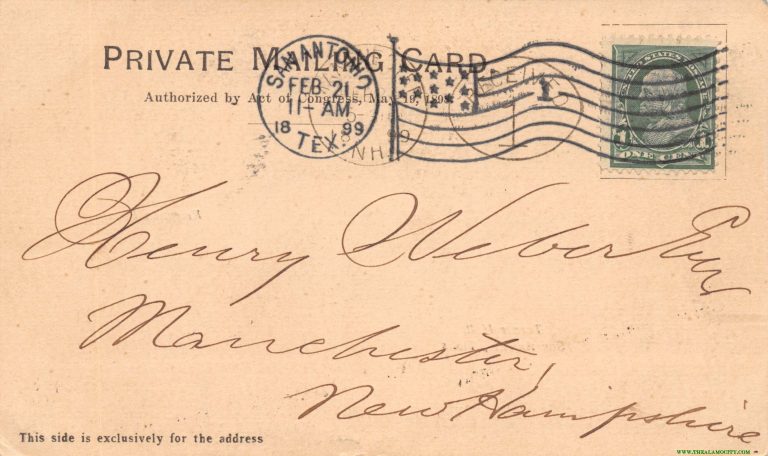 PRIVATE MAILING CARD
Authorized by Act of Congress, May 19, 1898
SAN ANTONIO
FEB. 21
11-AM
18 99
TEX.
RECEIVED
1
N.H.
99
UNITED STATES
1 1
ONE CENT
Henry Weber Esq
Manchester,
New Hampshire
This side is exclusively for the address
WWW.THEALAMOCITY.COM